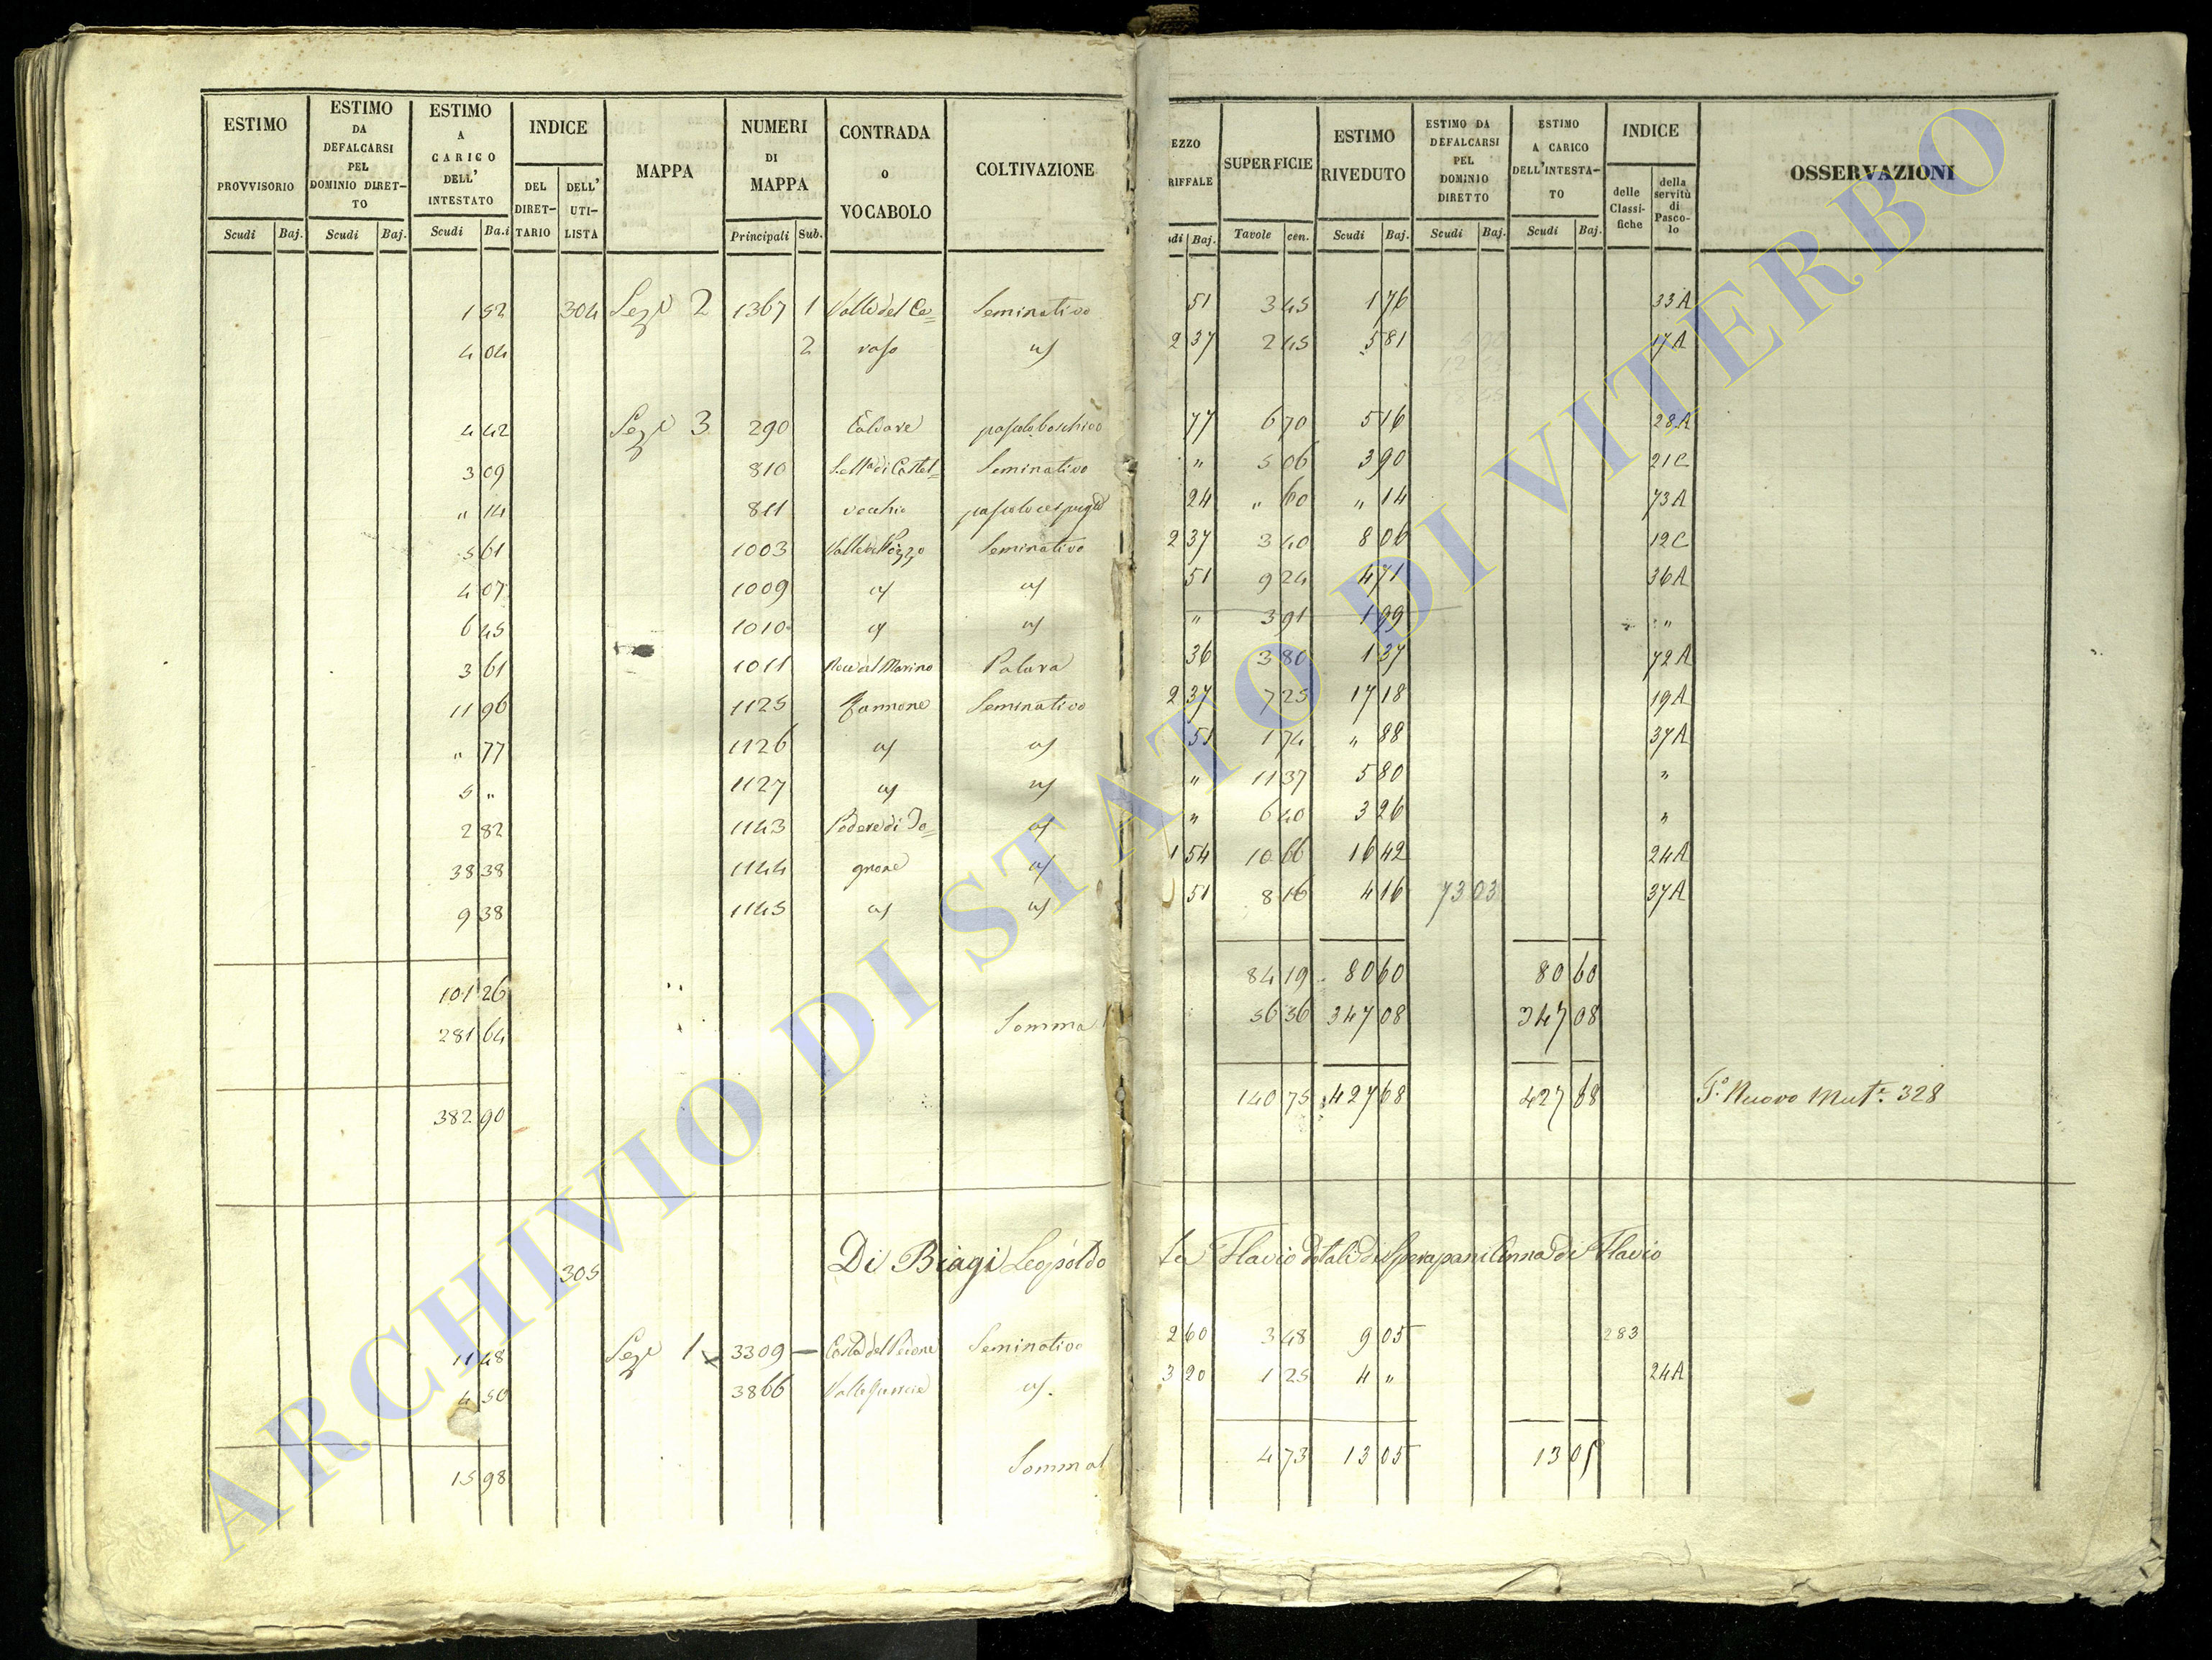 ESTIMO PROVVISORIO | ESTIMO DA DEFALCARSI PEL DOMINIO DIRETTO | ESTIMO A CARICO DELL' INTESTATO | INDICE | MAPPA | NUMERI DI MAPPA | CONTRADA o VOCABOLO | COLTIVAZIONE | EZZO RIFFALE | SUPERFICIE | ESTIMO RIVEDUTO | ESTIMO DA DEFALCARSI PEL DOMINIO DIRETTO | ESTIMO A CARICO DELL'INTESTATO | INDICE | OSSERVAZIONI
Scudi Baj. | Scudi Baj. | Scudi Ba.i | DEL DIRETTARIO | DELL' UTILISTA | Principali Sub. | di Baj. | Tavole cen. | Scudi Baj. | Scudi Baj. | Scudi Baj. | delle Classifiche | della servitù di Pascolo
1 52 304 Seze 2 1367 1 Valle del Ce= Seminativo 51 3 45 1 76 33A
4 04 2 raso us 2 37 2 45 5 81 17A
4 42 Seze 3 290 Caldare pascolo boschivo 77 6 70 5 16 28A
3 09 810 di Castel= Seminativo " 5 06 3 90 21C
" 14 811 vecchio pascolo cespugto 24 " 60 " 14 73A
5 61 1003 Valle del Pozzo Seminativo 2 37 3 40 8 06 12C
4 07 1009 us us 51 9 24 4 71 36A
6 45 1010 us us " 3 91 1 99 "
3 61 1011 Marino 36 3 80 1 37 72A
11 96 1125 Seminativo 2 37 7 25 17 18 19A
" 77 1126 us us 51 1 74 " 88 37A
5 " 1127 us us " 11 37 5 80 "
2 82 1143 Podere di To= us " 6 40 3 26 "
38 38 1144 gnone us 1 54 10 66 16 42 24A
9 38 1145 us us 51 8 16 4 16 73 03 37A
101 26 84 19 80 60 80 60
281 64 Somma 56 56 347 08 347 08
382 90 140 75 427 68 427 68 Po Nuovo Muta 328
305 Di Biagi Leopoldo Flavio dotali di Sperapani Anna di Flavio
11 48 Seze 1 3309 – Costa del Seminativo 2 60 3 48 9 05 283
4 50 3866 Valle us. 3 20 1 25 4 " 24A
15 98 Somma 4 73 13 05 13 05
ARCHIVIO DI STATO DI VITERBO